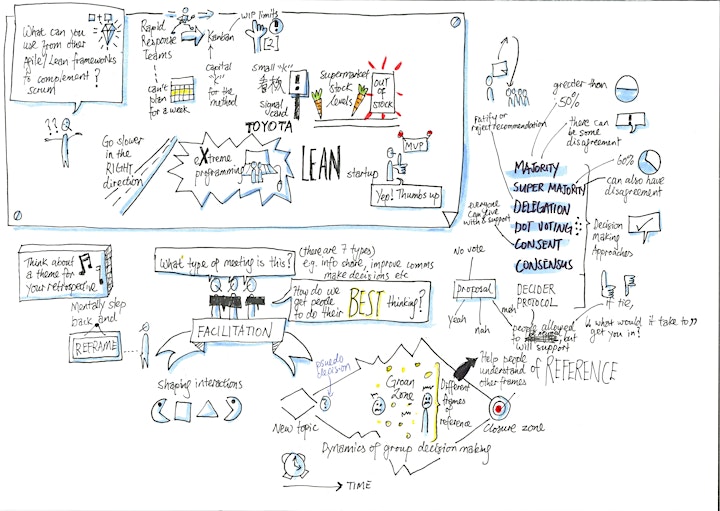 What can you
use from other
Agile/Lean frameworks
to complement
scrum ?
? ? Q
Rapid
Response
Teams
can't
plan
for a
week
Kanban
WIP limits
[2]
Capital
"K"
for the
method
small "k"
看板
Signal
card
!
TOYOTA
Supermarket
stock
levels
OUT
OF
STOCK
Go slower
in the
RIGHT
direction
eXtreme
programming
LEAN
startup
MVP
Yep! Thumbs up
Ratify or
reject recommendation
greater than
50%
there can
be some
disagreement
60%
can also have
disagreement
MAJORITY
SUPER MAJORITY
DELEGATION
DOT VOTING
CONSENT
CONSENSUS
Decision
Making
Approaches
everyone
can live
with & support
DECIDER
PROTOCOL
No vote
proposal
Yeah
nah
meh
people allowed
to
, but
will support
if tie,
"what would it take to"
get you in?
Think about
a theme for
your retrospective
Mentally step
back, and
REFRAME
What type of meeting is this?
(there are 7 types)
e.g. info share, improve comms
make decisions etc
How do we
get people
to do their
BEST
thinking?
FACILITATION
Shaping interactions
psuedo
decision
New topic
Groan
Zone
Different
frames
of
reference
Help people
understand
other frames
of REFERENCE
Closure zone
Dynamics of group decision making
TIME